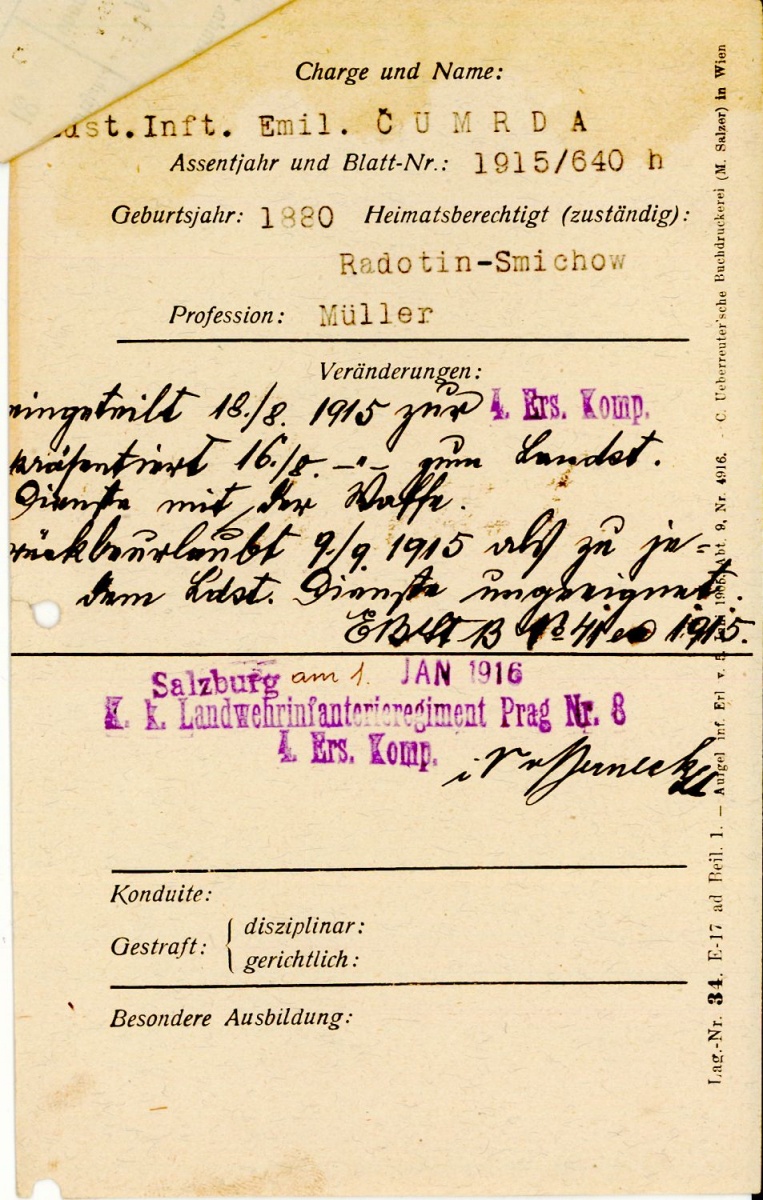 Charge und Name:
Ldst.Inft. Emil. Č U M R D A
Assentjahr und Blatt-Nr.: 1915/640 h
Geburtsjahr: 1880 Heimatsberechtigt (zuständig):
Radotin-Smichow
Profession: Müller
Veränderungen:
eingeteilt 18./8. 1915 zur 4. Ers. Komp.
präsentiert 16./8. -"- zum Landst.
Dienste mit der Waffe.
rückbeurlaubt 9./9. 1915 als zu je-
dem Ldst. Dienste ungeeignet.
1915.
Salzburg am 1. JAN 1916
K. k. Landwehrinfanterieregiment Prag Nr. 8
4. Ers. Komp.
Konduite:
Gestraft: disziplinar:
gerichtlich:
Besondere Ausbildung:
Lag.-Nr. 34. E-17 ad Beil. 1. — Aufgel. inf. Erl. v. 5. Abt. 9, Nr. 4916. - C. Ueberreuter'sche Buchdruckerei (M. Salzer) in Wien